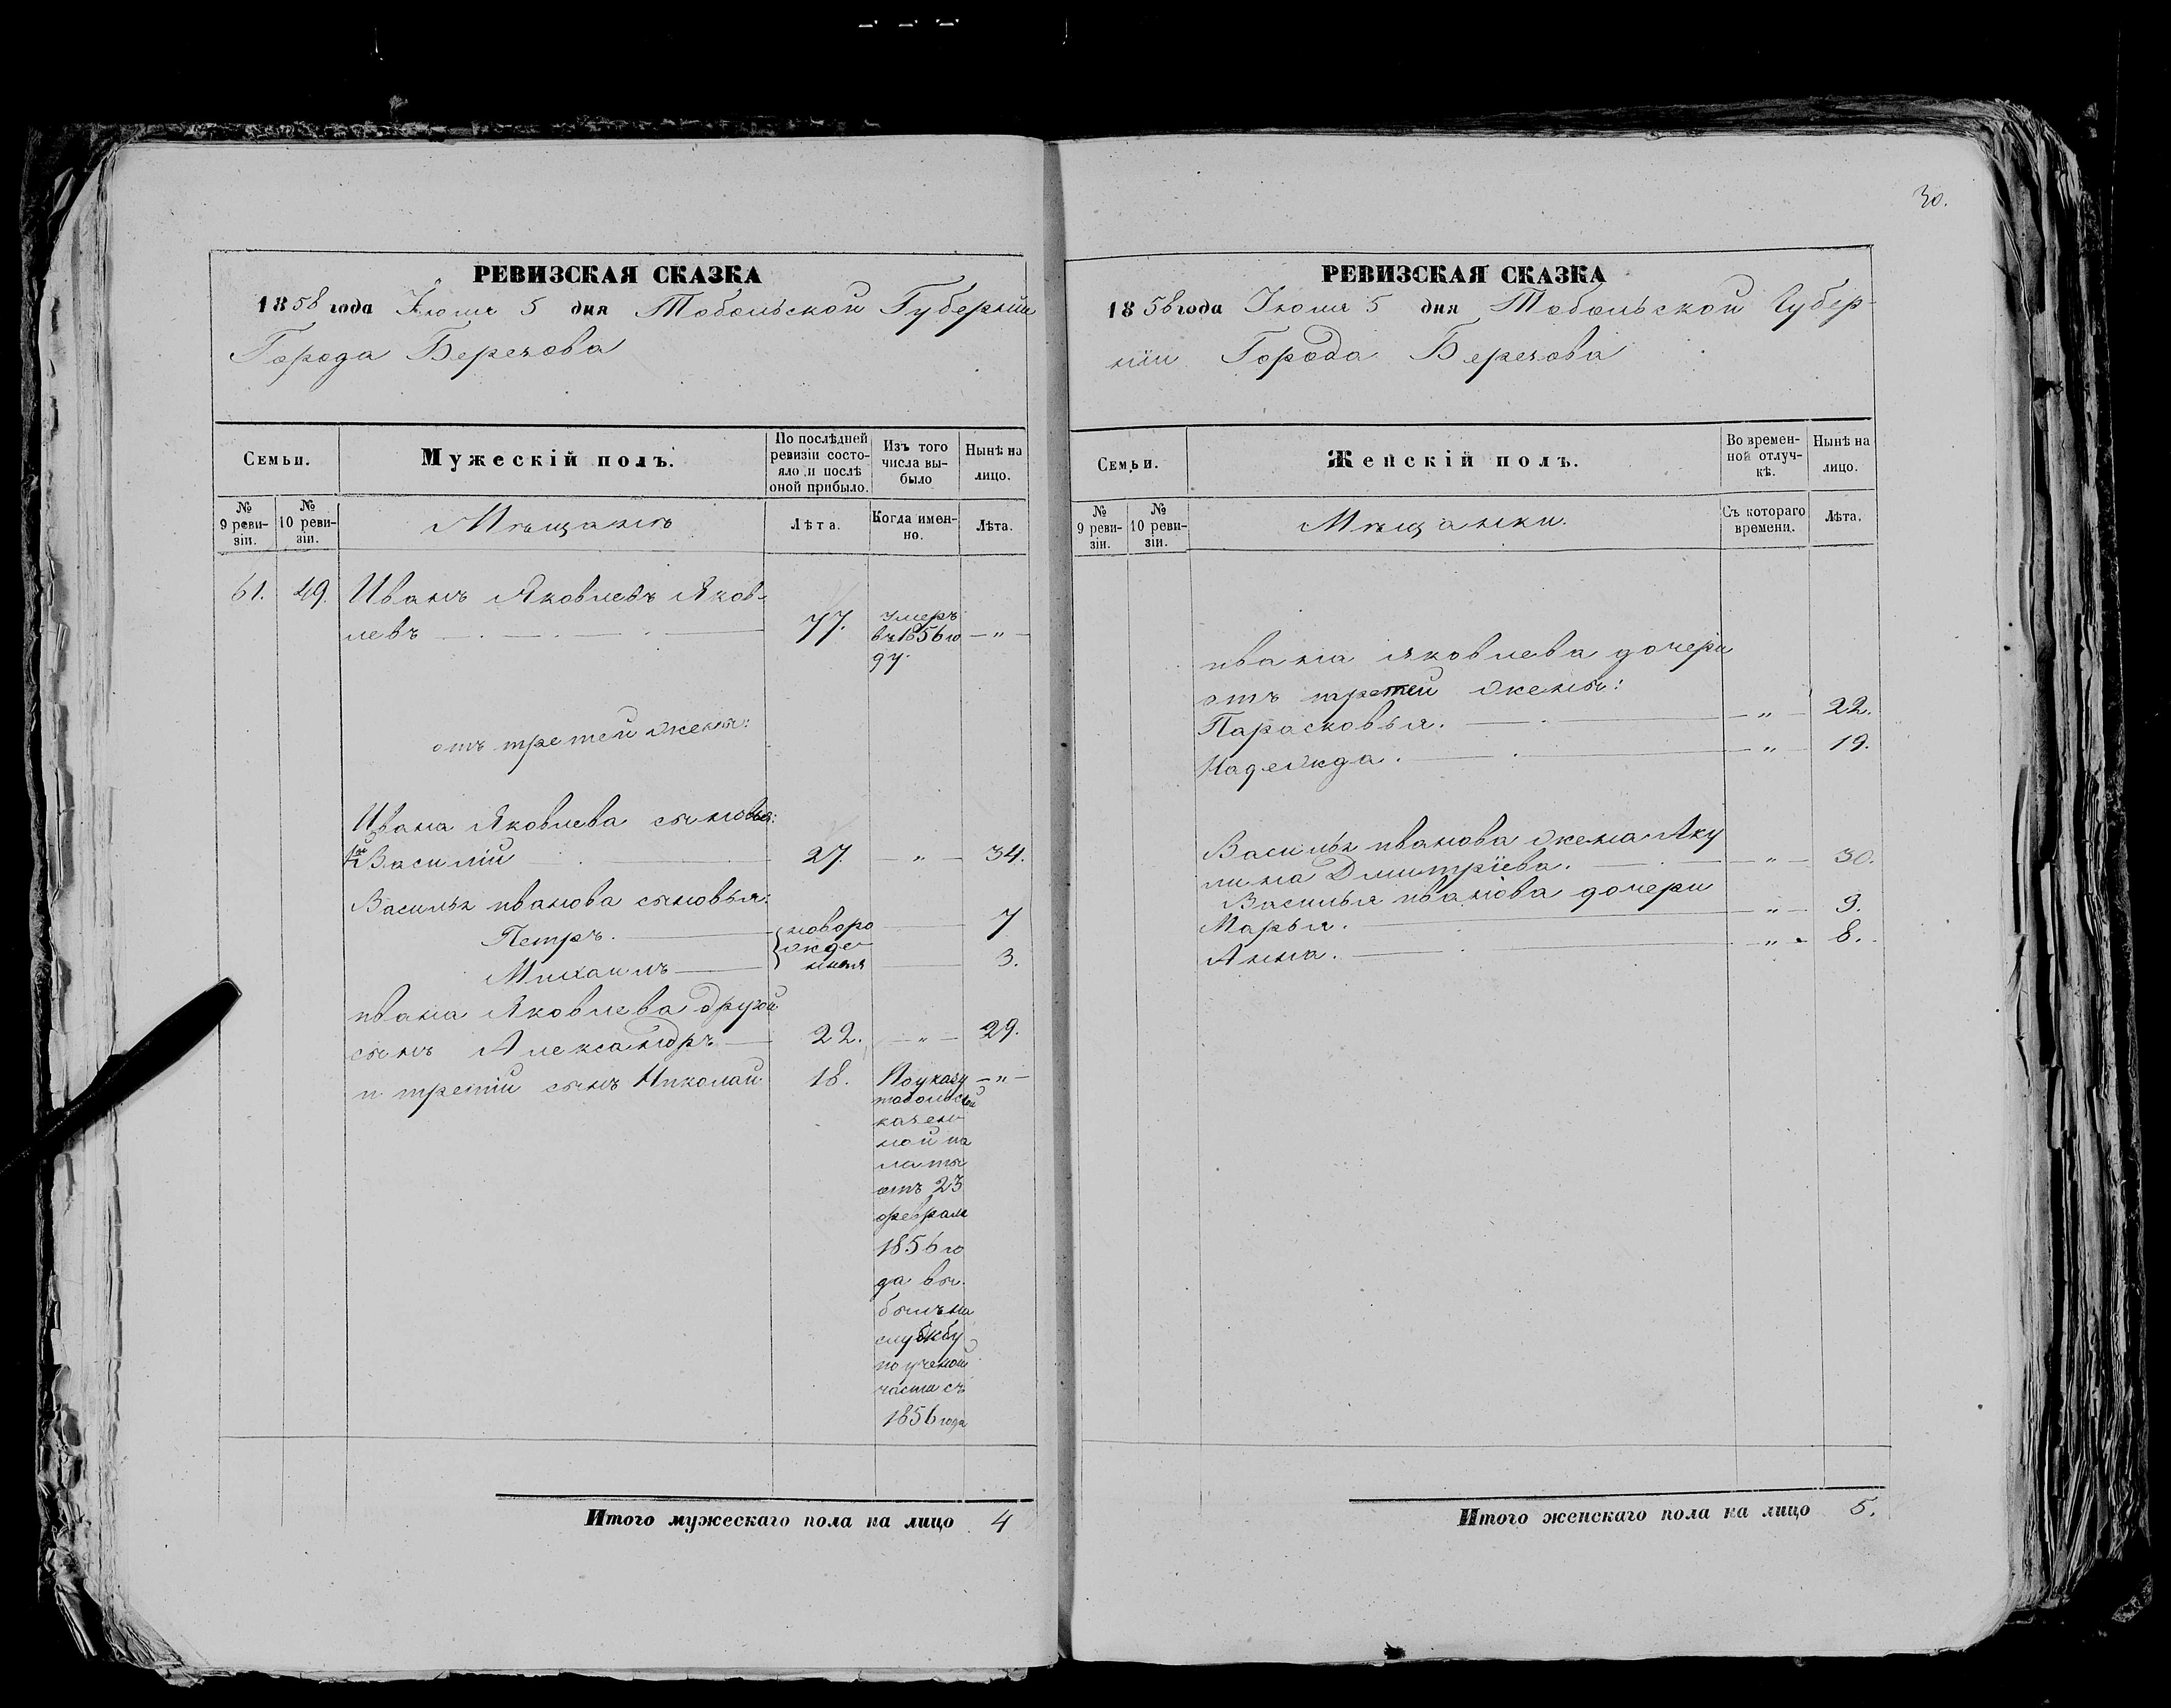 РЕВИЗСКАЯ СКАЗКА
1858 года Июня 5 дня Тобольской Губерніи
Города Березова
Семьи.
Мужескій полъ.
По послѣдней
ревизіи состо-
яло и послѣ
оной прибыло.
Изъ того
числа вы-
было
Нынѣ на
лицо.
№
9 реви-
зіи.
№
10 реви-
зіи.
Мѣщанѣ
Лѣта.
Когда имен-
но.
Лѣта.
61. 49. Иванъ Яковлевъ Яков-
левъ 77. умеръ
въ 1856 го
ду. "
отъ третей жены:
Ивана Яковлева сыновья:
Василій 27. " 34.
Василья иванова сыновья:
Петръ. новоро 7
жде
Михаилъ нныя 3.
ивана Яковлева другой
сынъ Александръ 22. " 29.
и третій сынъ Николай 18. По указу "
тобольской
казен
ной па
латы
отъ 23
февраля
1856 го
да вы
былъ на
службу
по ученой
части съ
1856 года
Итого мужескаго пола на лицо 4
30.
РЕВИЗСКАЯ СКАЗКА
1858 года Июня 5 дня Тобольской Губер-
ніи Города Березова
Семьи.
Женскій полъ.
Во времен-
ной отлуч-
кѣ.
Нынѣ на
лицо.
№
9 реви-
зіи.
№
10 реви-
зіи.
Мѣщанки.
Съ котораго
времени.
Лѣта.
ивана яковлева дочери
отъ третей жены:
Парасковья. " 22.
Надежда. " 19.
Василья иванова жена Аку
лина Дмитріева. " 30.
Василья иванова дочери
Марья. " 9.
Анна. " 8.
Итого женскаго пола на лицо 5.